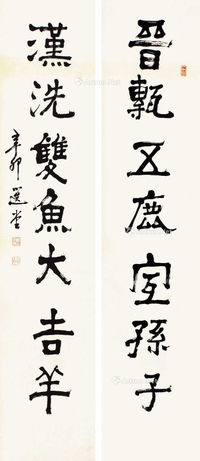 晋甎五鹿宜孫子
漢洗雙魚大吉羊
辛卯 選堂